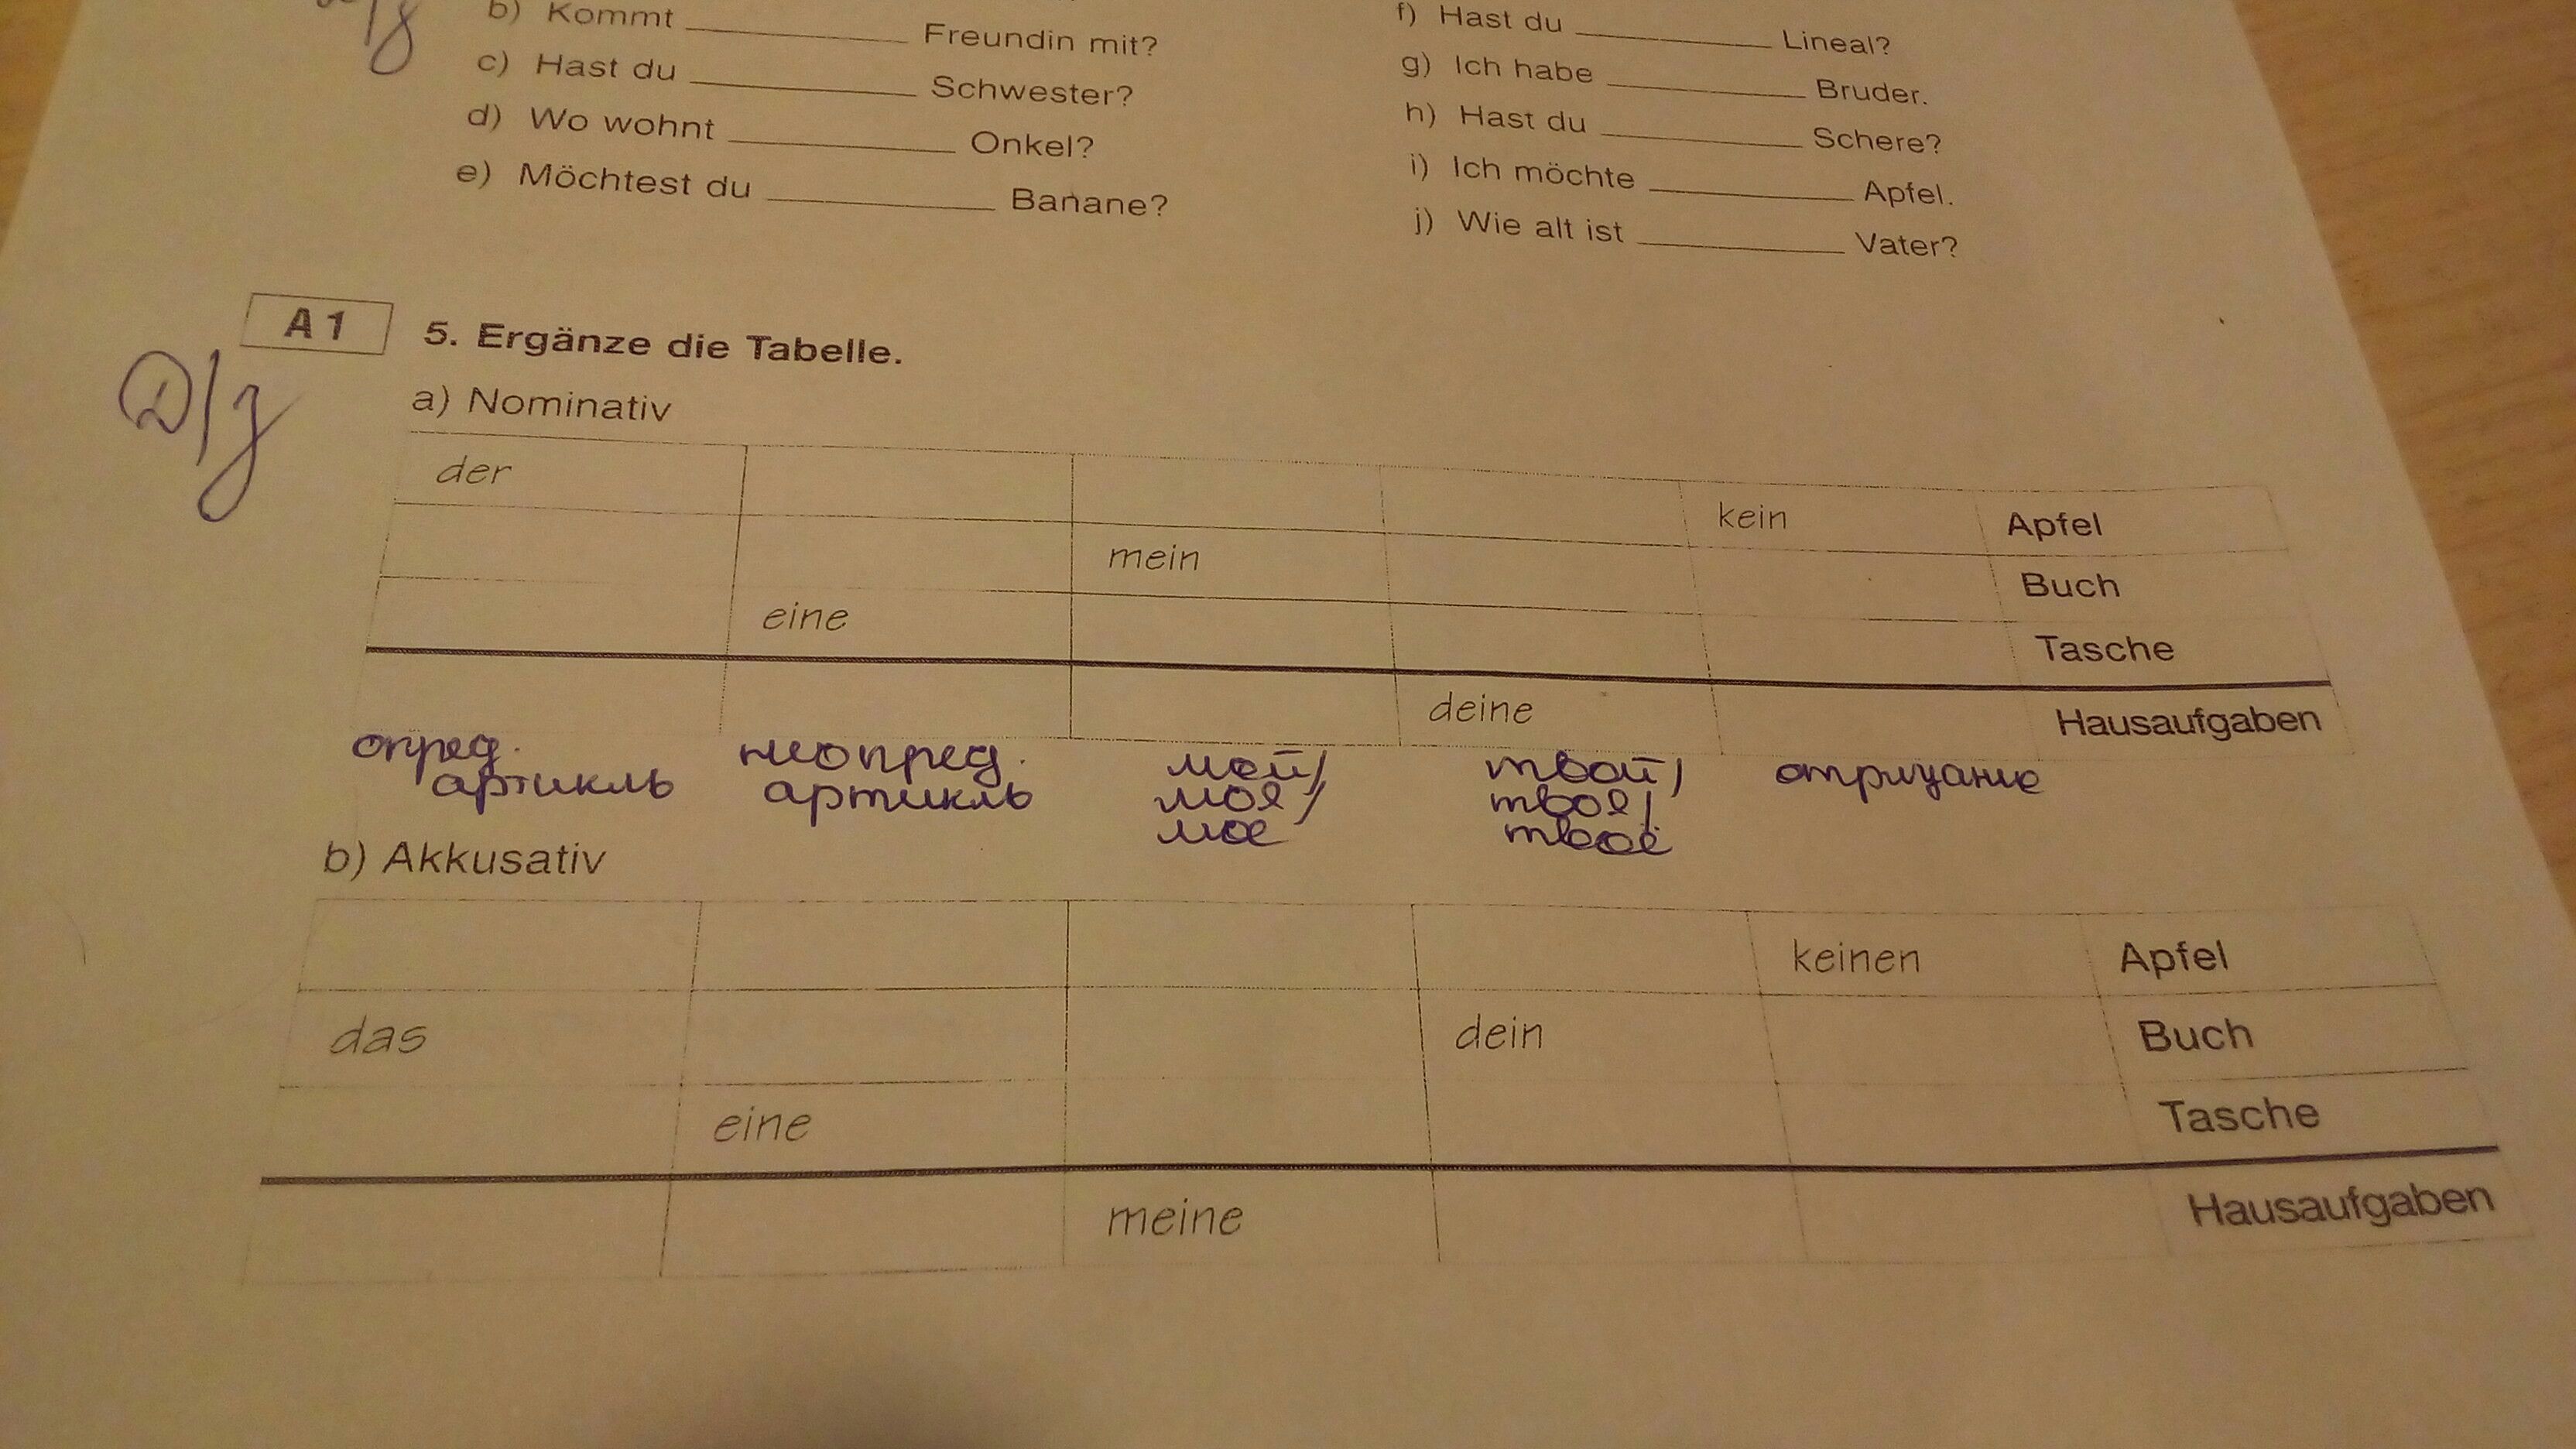 b) Kommt ____________ Freundin mit?
c) Hast du ____________ Schwester?
d) Wo wohnt ____________ Onkel?
e) Möchtest du ____________ Banane?
f) Hast du ____________ Lineal?
g) Ich habe ____________ Bruder.
h) Hast du ____________ Schere?
i) Ich möchte ____________ Apfel.
j) Wie alt ist ____________ Vater?
A 1
5. Ergänze die Tabelle.
Д/з
a) Nominativ
der kein Apfel
mein Buch
eine Tasche
deine Hausaufgaben
опред. неопред. мой/ твой/ отрицание
артикль артикль моя/ твоя/
мое твоё
b) Akkusativ
keinen Apfel
das dein Buch
eine Tasche
meine Hausaufgaben